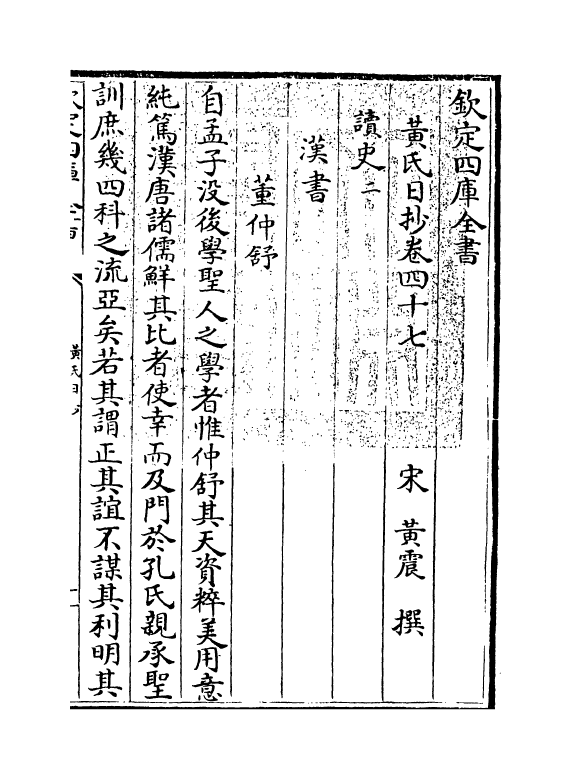 欽定四庫全書
黃氏日抄卷四十七
宋 黃震 撰
讀史二
漢書
董仲舒
自孟子没後學聖人之學者惟仲舒其天資粹美用意
純篤漢唐諸儒鮮其比者使幸而及門於孔氏親承聖
訓庶幾四科之流亞矣若其謂正其誼不謀其利明其